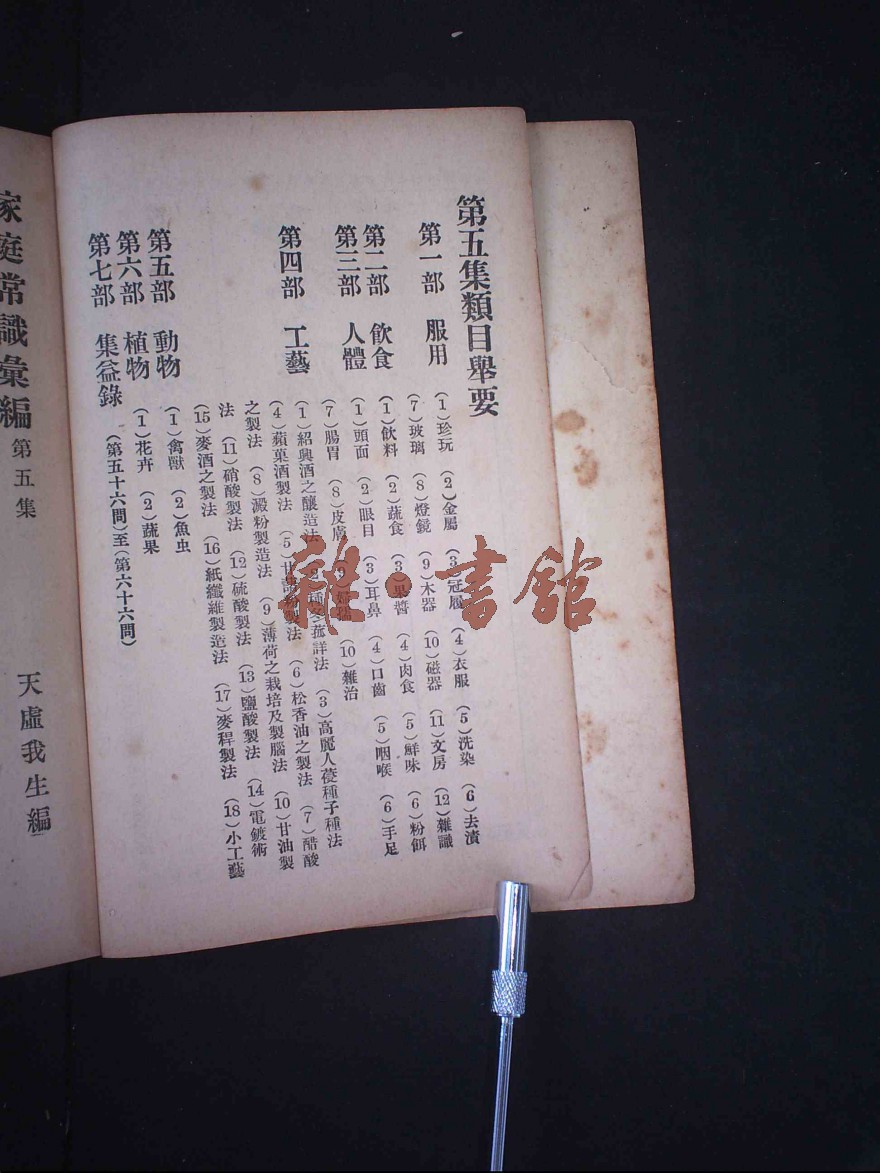 第五集類目舉要
第一部 服用 (1)珍玩 (2)金屬 (3)冠履 (4)衣服 (5)洗染 (6)去漬
(7)玻璃 (8)燈鏡 (9)木器 (10)磁器 (11)文房 (12)雜識
第二部 飲食 (1)飲料 (2)蔬食 (3)果醬 (4)肉食 (5)鮮味 (6)粉餌
第三部 人體 (1)頭面 (2)眼目 (3)耳鼻 (4)口齒 (5)咽喉 (6)手足
(7)腸胃 (8)皮膚 (10)雜治
第四部 工藝 (1)紹興酒之釀造法 種冬菰詳法 (3)高麗人葠種子種法
(4)蘋菓酒製法 (5)甘藷粉製法 (6)松香油之製法 (7)醋酸
之製法 (8)澱粉製造法 (9)薄荷之栽培及製腦法 (10)甘油製
法 (11)硝酸製法 (12)硫酸製法 (13)鹽酸製法 (14)電鍍術
(15)麥酒之製法 (16)紙纖維製造法 (17)麥稈製法 (18)小工藝
第五部 動物 (1)禽獸 (2)魚虫
第六部 植物 (1)花卉 (2)蔬果
第七部 集益錄 (第五十六問)至(第六十六問)
家庭常識彙編 第五集 天虛我生編
雜·書館